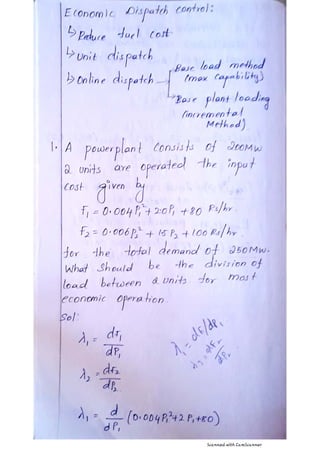 Economic Dispatch control:
↳ Reduce fuel cost
↳ Unit dispatch
↳ Online dispatch → Base load method (max capability)
→ Base plant loading (incremental Method)
1. A powerplant consists of 200MW
2 units are operated the input
cost given by
F₁ = 0.004P₁² + 2.0P₁ + 80 Rs/hr.
F₂ = 0.006P₂² + 1.5P₂ + 100 Rs/hr.
for the total demand of 250MW.
What should be the division of
load between 2 units for most
economic operation.
Sol:
λ₁ = dF₁/dP₁
λ₁ = dF/dP₁
λ₂ = dF₂/dP₂
λ₁ = d/dP₁ (0.004P₁²+2P₁+80)
Scanned with CamScanner